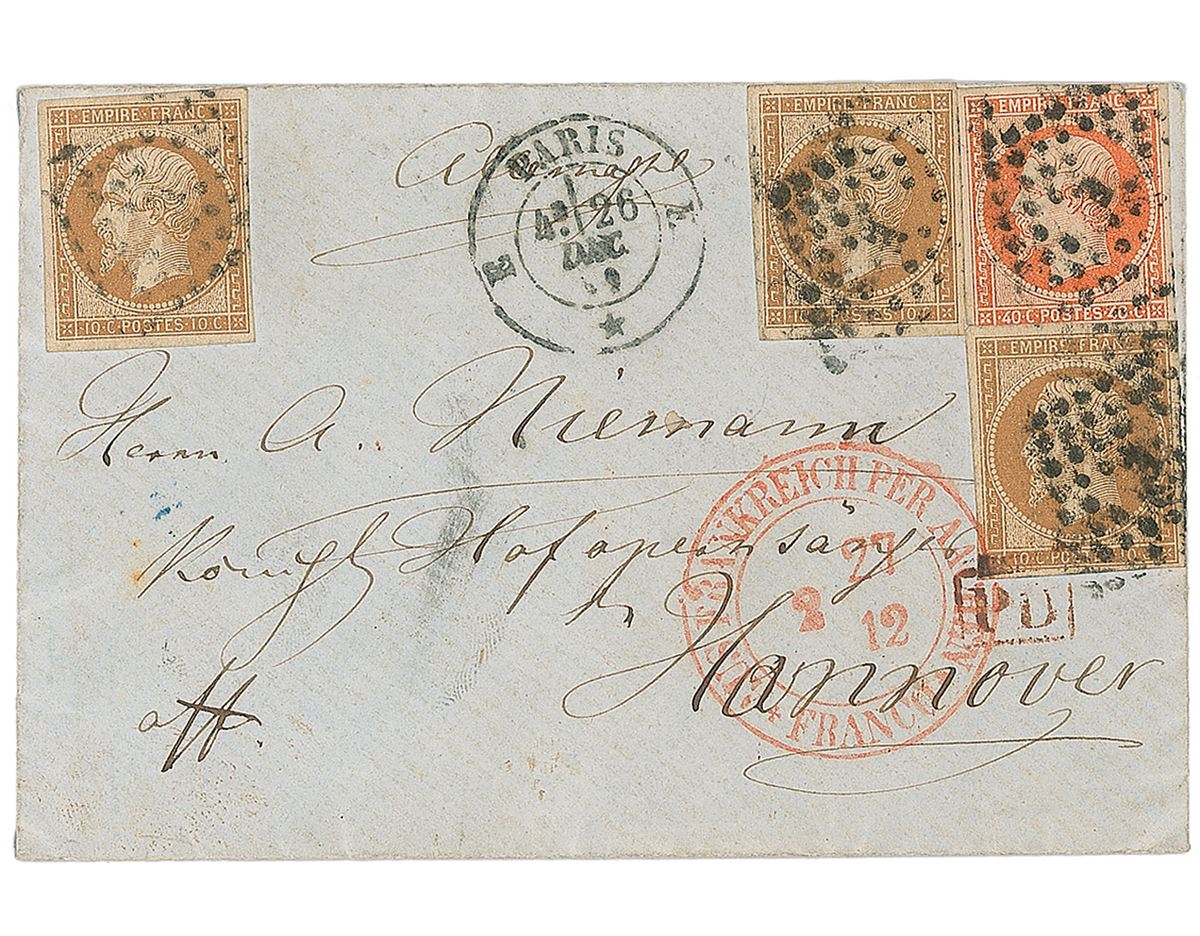 EMPIRE FRANC
10·C·POSTES·10·C
Allemagne
PARIS
26
EMPIRE FRANC
10·C·POSTES·10·C
EMPIRE FRANC
40·C·POSTES·40·C
EMPIRE FRANC
10·C·POSTES·10·C
Herrn A. Niemann
Königl Hofopernsänger
Hannover
aff.
AUS FRANKREICH PER AACHEN
27
2 12
FRANCO
PD